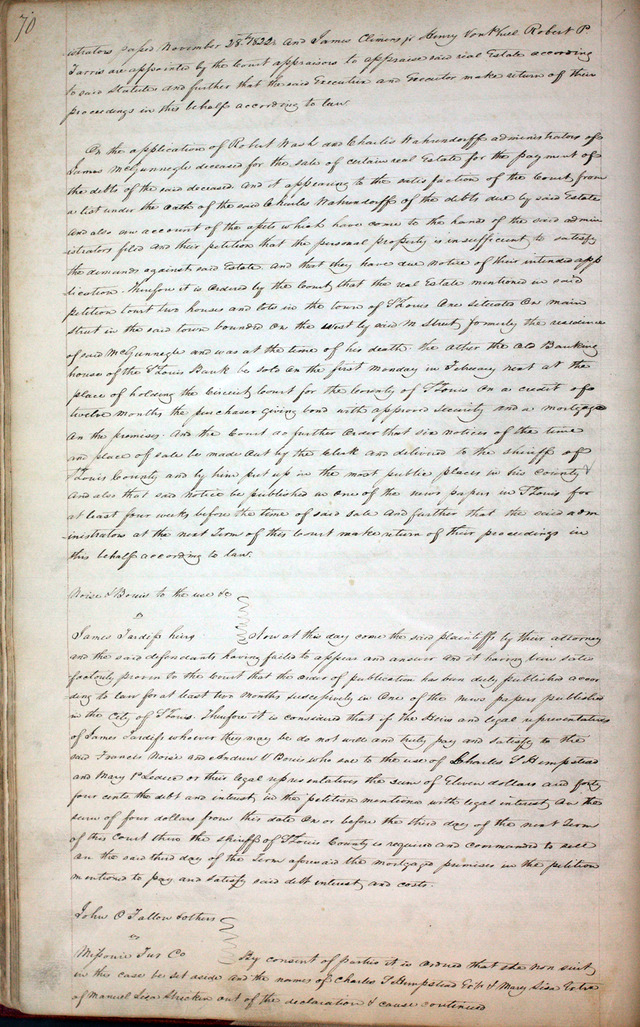 70
istrators passed November 28th 1822 And James Clemens jr Henry Von Phul Robert P
Farris are appointed by the Court appraisors to appraise said real Estate according
to said Statute and further that the said Executrix and Executor make return of their
proceedings in this behalf according to law
On the application of Robert Wash and Charles Wahrendorff administrators of
James McGunnegle deceased for the sale of certain real Estate for the payment of
the debts of the said deceased. And it appearing to the satisfaction of the Court, from
a list under the Oath of the said Charles Wahrendorff of the debts due by said Estate
And also an account of the assets which have come to the hands of the said admin
istrators filed and their petition that the personal property is insufficient to satisfy
the demands against said Estate. And that they have due notice of their intended app
lication. Therefore it is Ordered by the Court that the real Estate mentioned in said
petition to wit two houses and lots in the town of St Louis One situated On main
Street in the said town bounded On the West by said M Street, formerly the residence
of said McGunnegle and was at the time of his death the other the Old Banking
house of the St Louis Bank be sold On the first Monday in February next at the
place of holding the Circuit Court for the County of St Louis On a credit of
twelve months the purchaser giving bond with approved Security and a mortgage
On the premises. And the Court do further Order that six notices of the time
and place of sale be made Out by the Clerk and delivered to the sheriff of
St Louis County and by him put up in the most public places in his county &
And also that said notice be published in one of the news papers in St Louis for
at least four weeks before the time of said Sale And further that the said adm
inistrators at the next Term of this Court make return of their proceedings in
this behalf according to law.
Noise & Bouis to the use &c
vs
James Tardifs heirs Now at this day come the said plaintiffs by their attorney
and the said defendants having failed to appear and answer and it having been satis
factorily proven to the Court that the order of publication has been duly published accor
ding to law for at least two months successively in One of the news papers published
in the City of St Louis. Therefore it is considered that if the Heirs and legal representatives
of James Tardifs whoever they may be do not well and truly pay and satisfy to the
said Francis Noise and Andrew V Bouis who sue to the use of Charles S Hempstead
and Mary P Leduc or their legal representatives the sum of Eleven dollars and forty
four cents the debt and interest in the petition mentioned with legal interest On the
sum of four dollars from this date On or before the third day of the next Term
of this Court then the sheriff of St Louis County is required and commanded to sell
On the said third day of the Term aforesaid the mortgaged premises in the petition
mentioned to pay and satisfy said debt interest and costs.
John O Fallon & others
vs
Missouri Fur Co By consent of parties it is ordered that the non suit
in the case be set aside and the names of Charles S Hempstead Exr & Mary Lisa Extrx
of Manuel Lisa Stricken out of the declaration & cause continued